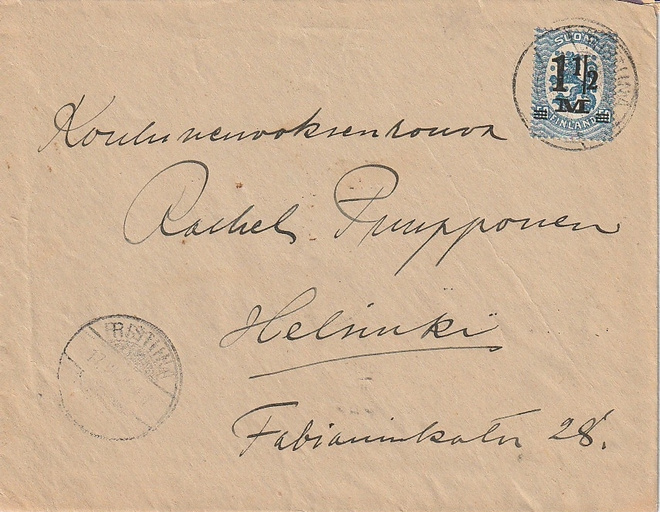 SUOMI
1 1/2
M
FINLAND
Koulunneuvoksenrouva
Rachel Puupponen
Helsinki
Fabianinkatu 28.
RISTIINA